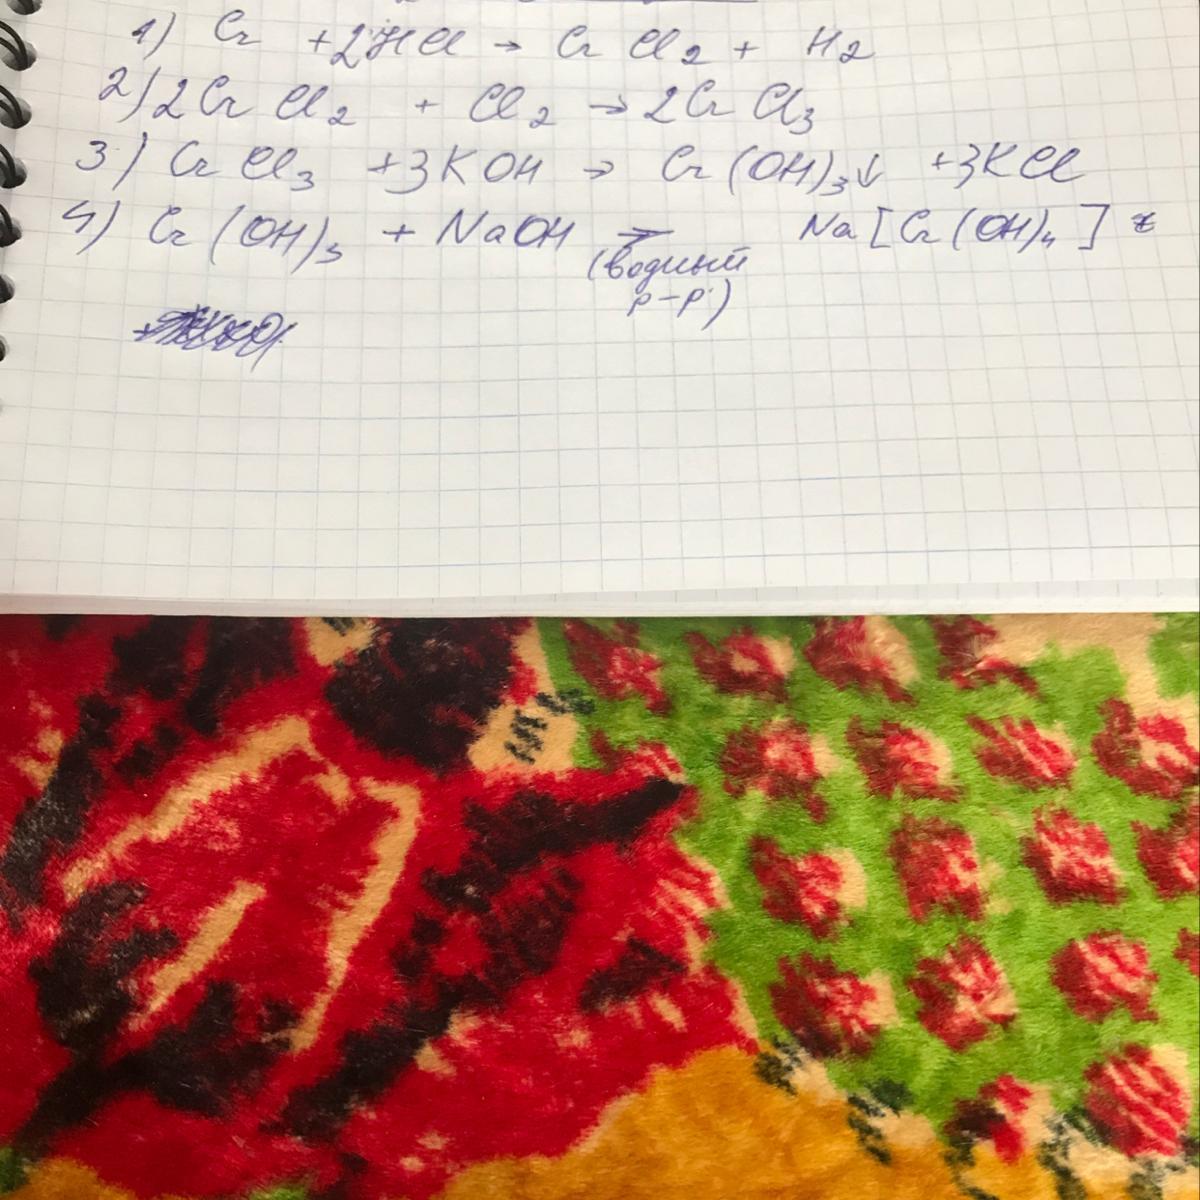 1) Cr + 2HCl → CrCl2 + H2
2) 2CrCl2 + Cl2 → 2CrCl3
3) CrCl3 + 3KOH → Cr(OH)3↓ + 3KCl
4) Cr(OH)3 + NaOH → Na[Cr(OH)4]
(водный
р-р)